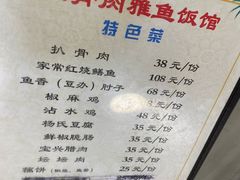 骨肉雅鱼饭馆
特色菜
扒骨肉 38元/份
家常红烧鳝鱼 108元/份
鱼香(豆办)肘子 68元/份
椒麻鸡 48元/份
沾水鸡 48元/份
杨氏豆腐 35元/份
鲜椒脆肠 35元/份
宝兴腊肉 48元/份
坛坛肉 35元/份
糍饼 25元/份